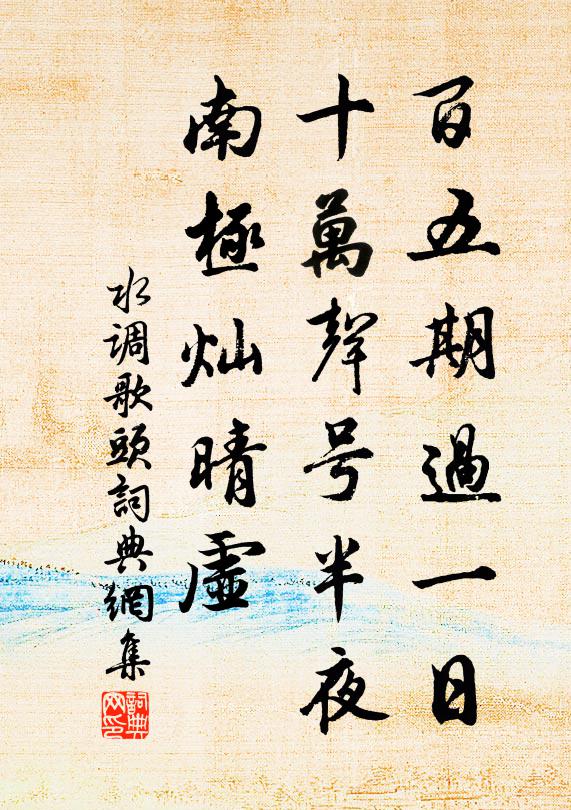 百五期過一日
十萬聲号半夜
南極灿晴虛
水调歌頭詞典網集
詞典
网印